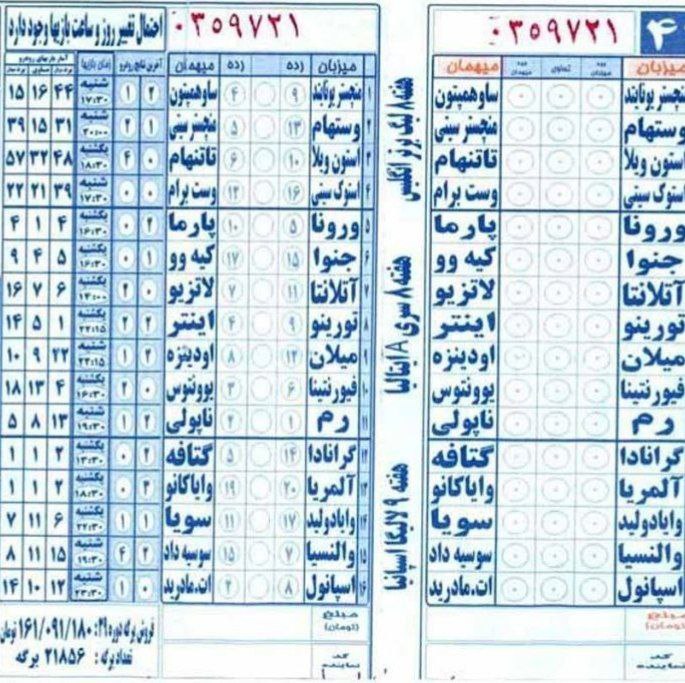 ۰۳۵۹۷۲۱ ۴
میزبان برد میزبان تساوی برد میهمان میهمان
منچستر یونایتد ساوهمپتون
وستهام منچستر سیتی
استون ویلا تاتنهام
استوک سیتی وست برام
ورونا پارما
جنوا کیه وو
آتلانتا لاتزیو
تورینو اینتر
میلان اودینزه
فیورنتینا یوونتوس
رم ناپولی
گرانادا گتافه
آلمریا وایاکانو
وایادولید سویا
والنسیا سوسیه داد
اسپانول ات.مادرید
مبلغ (تومان)
کد نماینده
هفته ۸ لیگ برتر انگلیس
هفته ۸ سری A ایتالیا
هفته ۹ لالیگا اسپانیا
۰۳۵۹۷۲۱
احتمال تغییر روز و ساعت بازیها وجود دارد
میزبان (رده) (رده) میهمان آخرین نتایج رودررو زمان بازیها آمار بازیهای رودررو
۱ منچستر یونایتد ۹ ۴ ساوهمپتون ۲ ۱ شنبه ۱۷:۳۰ ۴۴ ۱۶ ۱۵
۲ وستهام ۱۳ ۵ منچستر سیتی ۱ ۲ شنبه ۲۰:۰۰ ۳۱ ۱۵ ۳۹
۳ استون ویلا ۱۰ ۶ تاتنهام ۴ ۰ یکشنبه ۱۸:۳۰ ۴۸ ۳۲ ۵۷
۴ استوک سیتی ۱۶ ۱۲ وست برام ۰ ۰ شنبه ۱۷:۳۰ ۳۹ ۲۱ ۲۲
۵ ورونا ۵ ۱۰ پارما ۰ ۲ یکشنبه ۱۶:۳۰ ۴ ۱ ۴
۶ جنوا ۱۵ ۱۷ کیه وو ۱ ۰ یکشنبه ۱۶:۳۰ ۵ ۴ ۹
۷ آتلانتا ۱۱ ۷ لاتزیو ۰ ۲ یکشنبه ۱۴:۰۰ ۶ ۷ ۱۶
۸ تورینو ۹ ۴ اینتر ۲ ۲ یکشنبه ۲۲:۱۵ ۱ ۵ ۱۴
۹ میلان ۱۲ ۸ اودینزه ۲ ۱ شنبه ۲۲:۱۵ ۲۲ ۹ ۱۰
۱۰ فیورنتینا ۶ ۳ یوونتوس ۰ ۲ یکشنبه ۱۶:۳۰ ۴ ۱۳ ۱۸
۱۱ رم ۱ ۲ ناپولی ۲ ۱ شنبه ۱۹:۳۰ ۱۳ ۸ ۵
۱۲ گرانادا ۱۴ ۵ گتافه ۲ ۰ یکشنبه ۱۳:۳۰ ۱ ۱ ۲
۱۳ آلمریا ۲۰ ۱۹ وایاکانو ۳ ۰ یکشنبه ۱۸:۳۰ ۱ ۱ ۲
۱۴ وایادولید ۱۷ ۱۱ سویا ۱ ۱ یکشنبه ۲۲:۳۰ ۶ ۱۱ ۷
۱۵ والنسیا ۷ ۱۵ سوسیه داد ۲ ۴ شنبه ۱۹:۳۰ ۱۵ ۱۱ ۸
۱۶ اسپانول ۸ ۲ ات.مادرید ۰ ۱ شنبه ۲۳:۳۰ ۱۲ ۱۰ ۱۴
مبلغ (تومان)
کد نماینده
فروش برگه دوره ۲۹: ۱۶۱/۰۹۱/۱۸۰ تومان
تعداد برگه: ۲۱۸۵۶ برگه